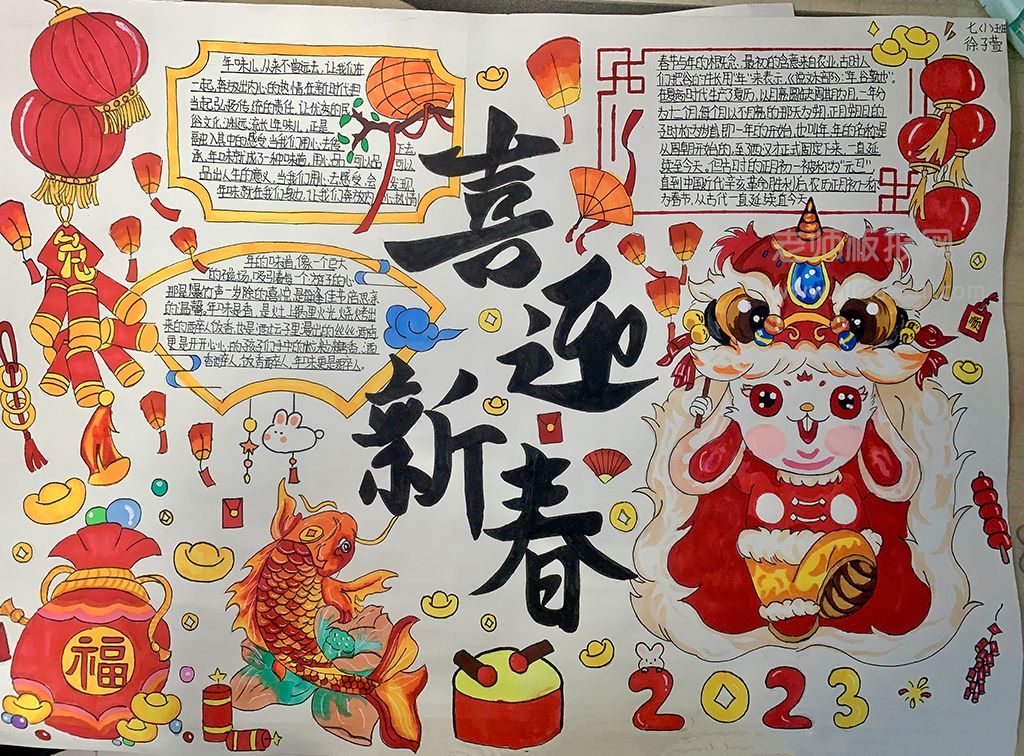 七(1)班
徐子萱
年味儿,从来不曾远去,让我们在
一起,释放出内心的热情在新时代担
当起弘扬传统的责任,让优秀的民
俗文化,源远流长,年味儿,正是
融入其中的感受,当我们用心去传
承,年味节成了一种味道,用心品
品出人生的意义,当我们用心去感受,会发现
年味就在我们身边,让我们释放内心激情
年的味道,像一个巨大
的磁场,吸引着每一个
那是爆竹声一岁除的喜悦,是每逢佳节倍思亲
的温馨,年味是香,是灶上
来的醉人饭香,也是酒坛子里漫出的丝丝酒味
更是开开心心的孩子们手中的
酒香醉人,饭香醉人,年味更是醉人.
春节与年的概念,最初的含意来自农业,古时人
们把谷的生长周期"年"来表示,《说文·禾部》:"年,谷熟也".
在夏商时代生产了夏历,以月亮圆缺为周期为月,一年分
为十二月,每个月以不见月亮的那天为朔,正月朔日的
子时称为岁首,即一年的开始,也叫年,年的名称是
从周朝开始的,至西汉才正式固定下来,一直延
续至今天。但古时的正月初一被称为"元旦",
直到中国近代辛亥革命胜利后,农历正月初一称
为春节,从古代一直延续直今天。
喜
迎
新
春
福
2023
老师板报网